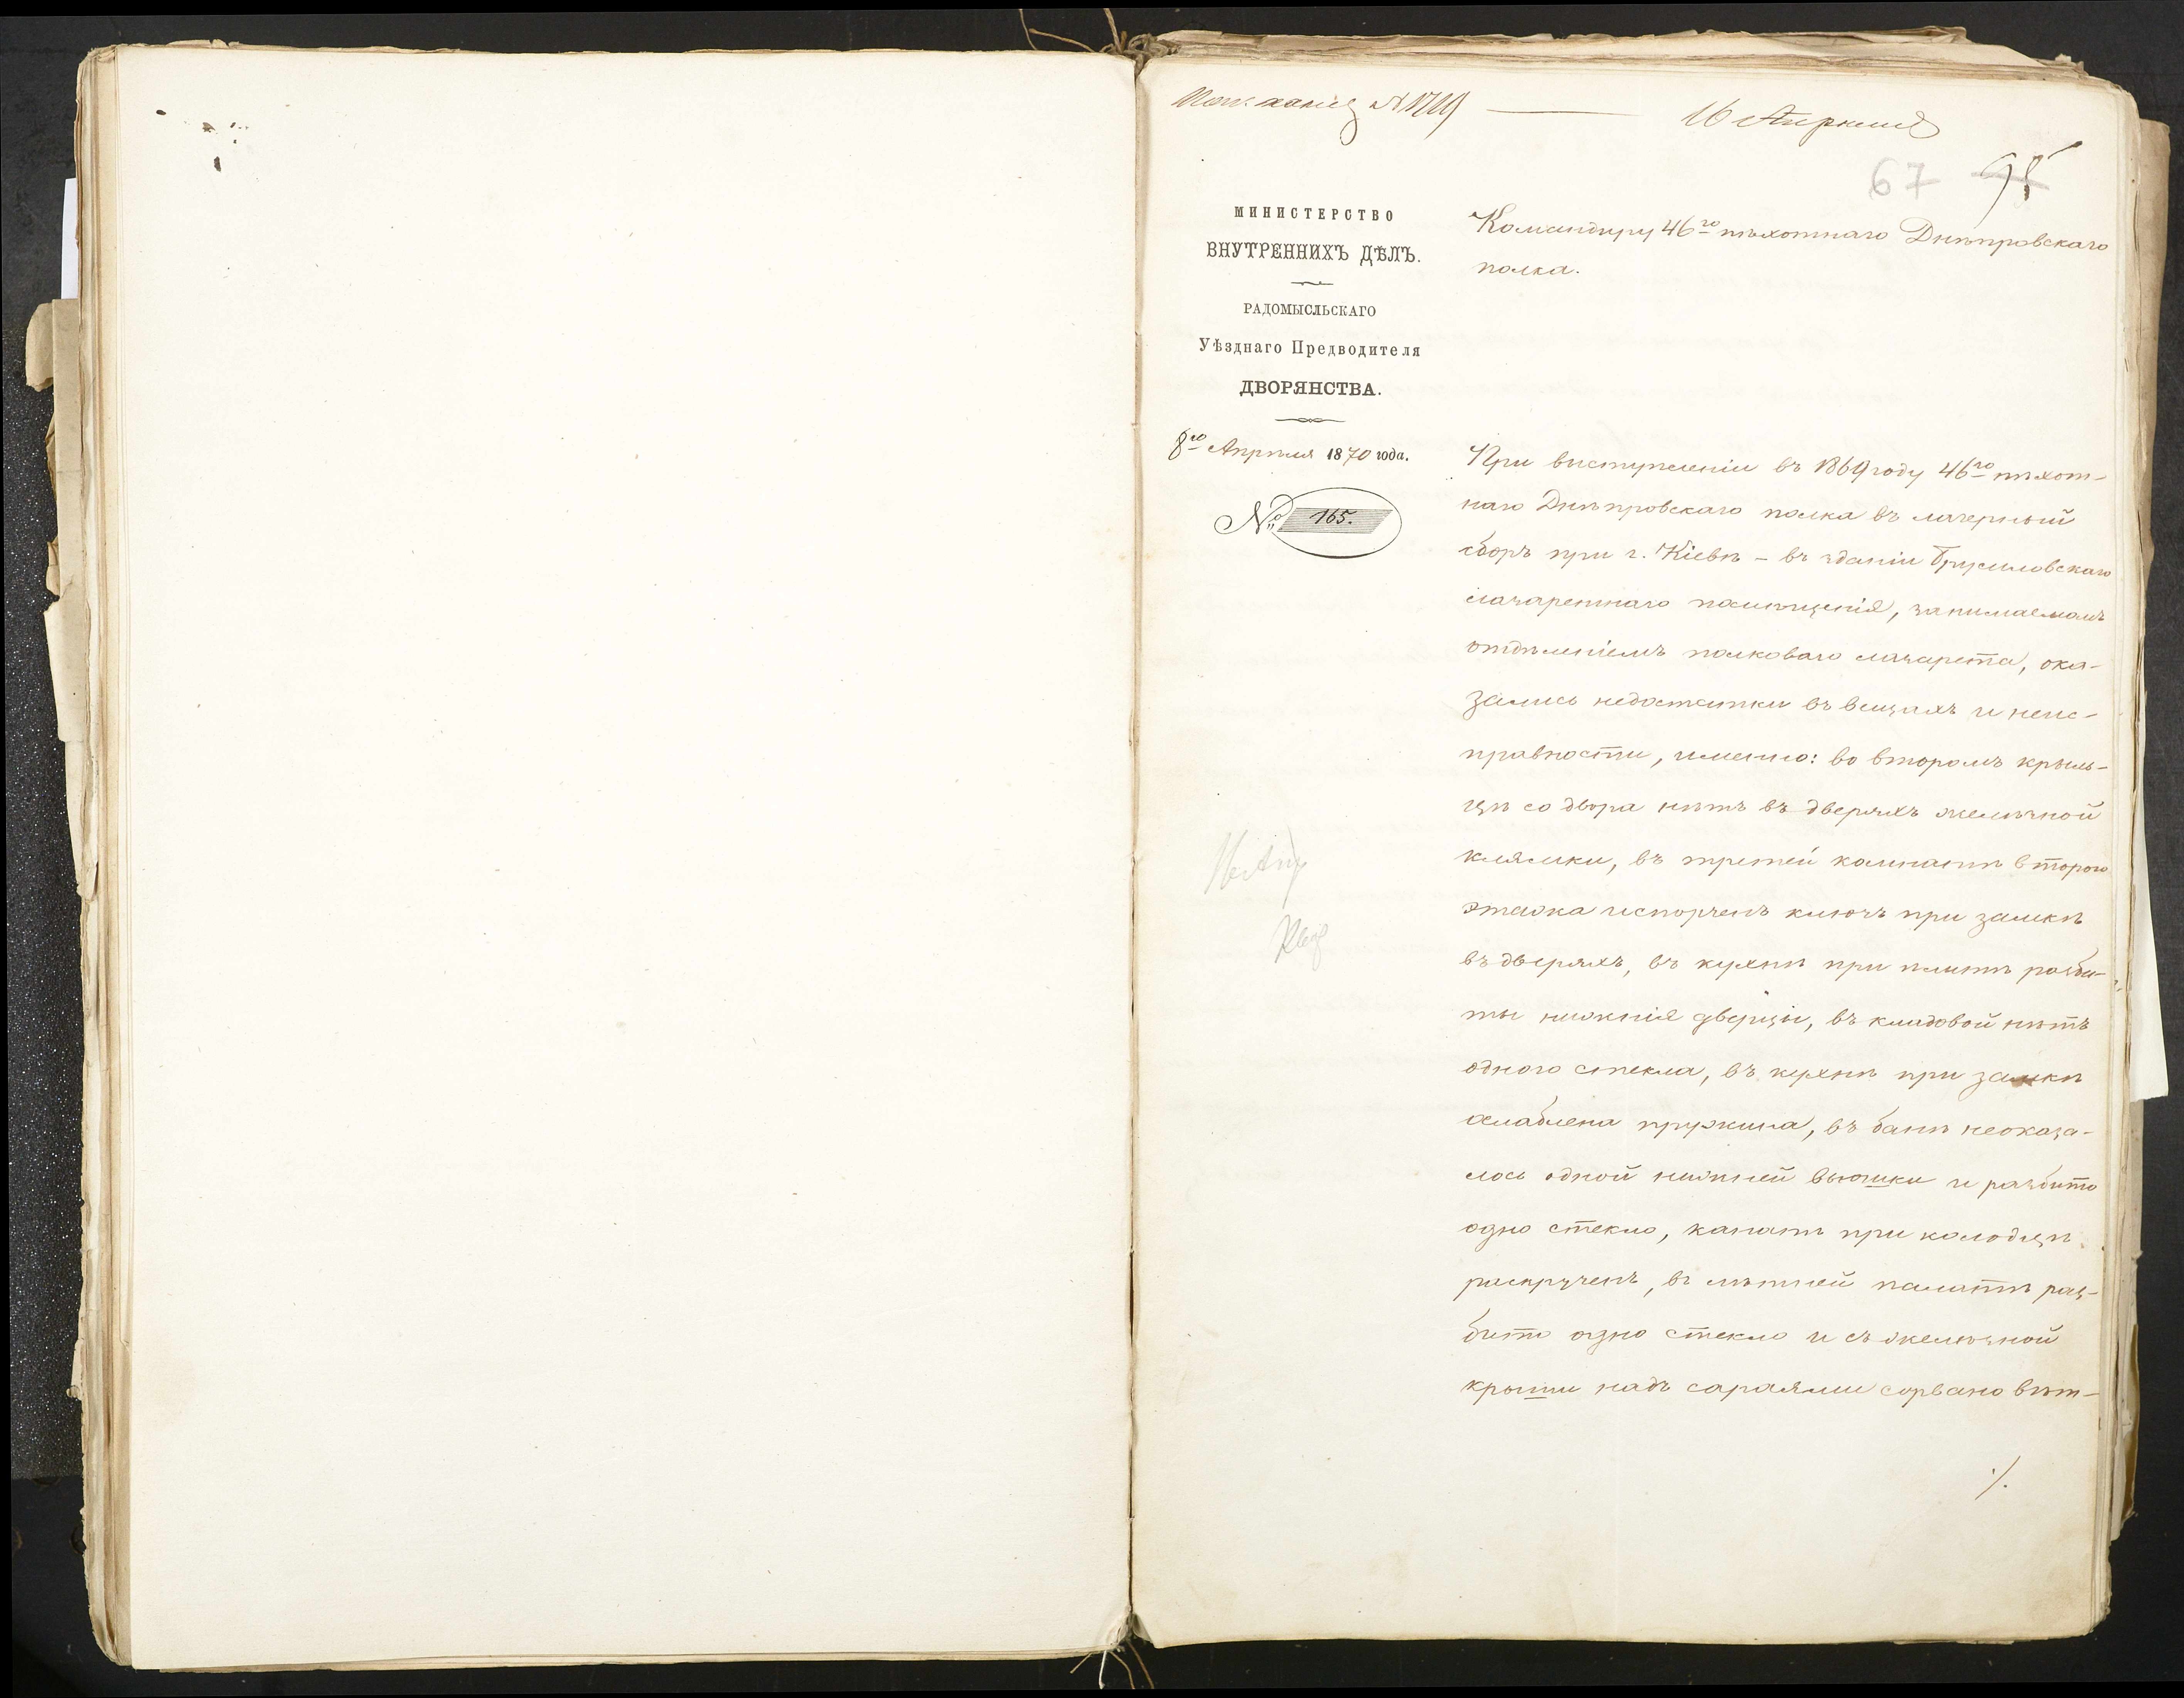 16 Апреля
67 95
МИНИСТЕРСТВО
ВНУТРЕННИХЪ ДѢЛЪ.
РАДОМЫСЛЬСКАГО
Уѣзднаго Предводителя
ДВОРЯНСТВА.
8го Апрѣля 1870 года.
№ 165.
Командиру 46го пѣхотнаго Днѣпровскаго
полка.
При выступленіи въ 1869 году 46го пѣхот-
наго Днѣпровскаго полка въ лагерный
сборъ при г. Кіевѣ - въ зданіи Брусиловскаго
лазаретнаго помѣщенія, занимаемомъ
отдѣленіемъ полковаго лазарета, ока-
зались недостатки въ вещахъ и неис-
правности, именно: во второмъ крыль-
цѣ со двора нѣтъ въ дверяхъ желѣзной
клямки, въ третей комнатѣ второго
этажа испорченъ ключъ при замкѣ
въ дверяхъ, въ кухнѣ при плитѣ разби-
ты нижнія дверцы, въ кладовой нѣтъ
одного стекла, въ кухнѣ при замкѣ
ослаблена пружина, въ банѣ неоказа-
лось одной нижней вьюшки и разбито
одно стекло, канатъ при колодцѣ
раскрученъ, въ лѣтней палатѣ раз-
бито одно стекло и съ желѣзной
крыши надъ сараями сорвано вѣт-
./.